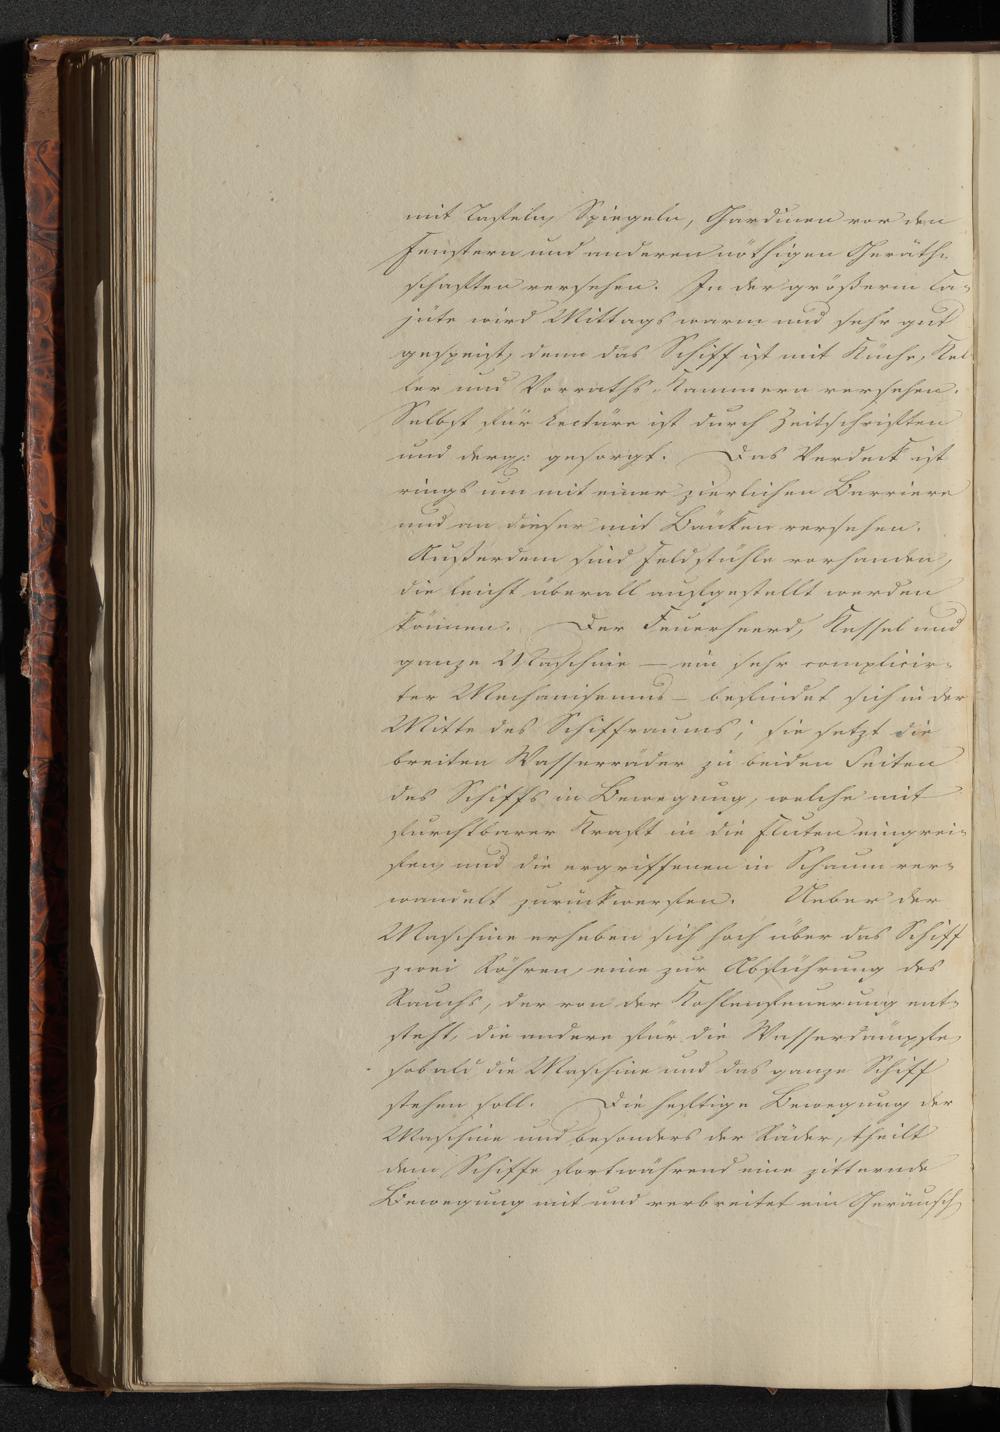 mit Tafeln, Spiegeln, Gardinen vor den
Fenstern und anderen nöthigen Geräth-
schaften versehen. In der größern Ca-
jüte wird Mittags warm und sehr gut
gespeist, denn das Schiff ist mit Küche, Kel
ler und Vorraths-Kammern versehen.
Selbst für Lectüre ist durch Zeitschriften
und dergl: gesorgt. Das Verdeck ist
rings um mit einer zierlichen Barriere
und an dieser mit Bänken versehen.
Außerdem sind Feldstühle vorhanden,
die leicht überall aufgestellt werden
können. Der Feuerheerd, Kessel und
ganze Maschine — ein sehr complicir-
ter Mechanismus — befindet sich in der
Mitte des Schiffraums; sie setzt die
breiten Wasserräder zu beiden Seiten
des Schiffs in Bewegung, welche mit
furchtbarer Kraft in die Fluten eingrei-
fen, und die ergriffenen in Schaum ver-
wandelt zurückwerfen. Ueber der
Maschine erheben sich hoch über das Schiff
zwei Röhren, eine zur Abführung des
Rauchs, der von der Kohlenfeuerung ent-
steht, die andere für die Wasserdämpfe,
sobald die Maschine und das ganze Schiff
stehen soll. Die heftige Bewegung der
Maschine und besonders der Räder, theilt
dem Schiffe fortwährend eine zitternde
Bewegung mit und verbreitet ein Geräusch,